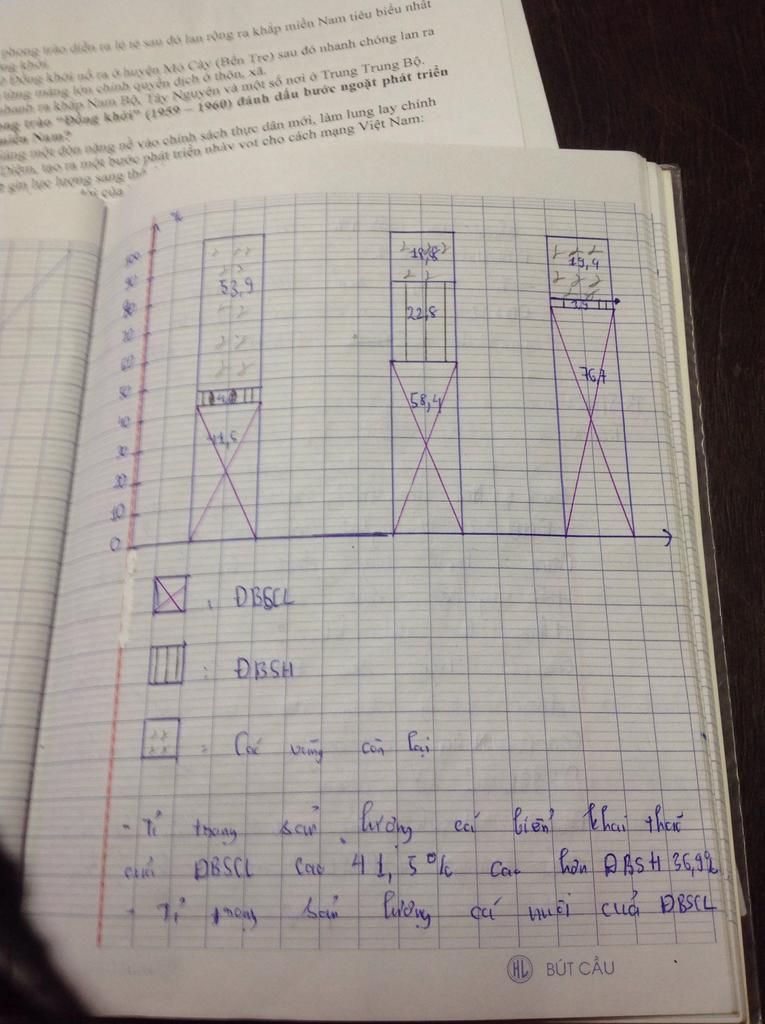 phong trào diễn ra lẻ tẻ sau đó lan rộng ra khắp miền Nam tiêu biểu nhất
khởi.
Đồng khởi nổ ra ở huyện Mỏ Cày (Bến Tre) sau đó nhanh chóng lan ra
từng mảng lớn chính quyền địch ở thôn, xã.
nhanh ra khắp Nam Bộ, Tây Nguyên và một số nơi ở Trung Trung Bộ.
trào "Đồng khởi" (1959 – 1960) đánh dấu bước ngoặt phát triển
miền Nam?
giáng một đòn nặng nề vào chính sách thực dân mới, làm lung lay chính
Diệm, tạo ra một bước phát triển nhảy vọt cho cách mạng Việt Nam:
gìn lực lượng sang
của
%
100
90
80
70
60
50
40
30
20
10
0
53,9
41,5
18,8
22,8
58,4
19,4
76,7
: ĐBSCL
: ĐBSH
: Các vùng còn lại
- Tỉ trọng sản lượng cá biển khai thác
của ĐBSCL cao 41,5% cao hơn ĐBSH 36,9%
- Tỉ trọng sản lượng cá nuôi của ĐBSCL
HL BÚT CẦU